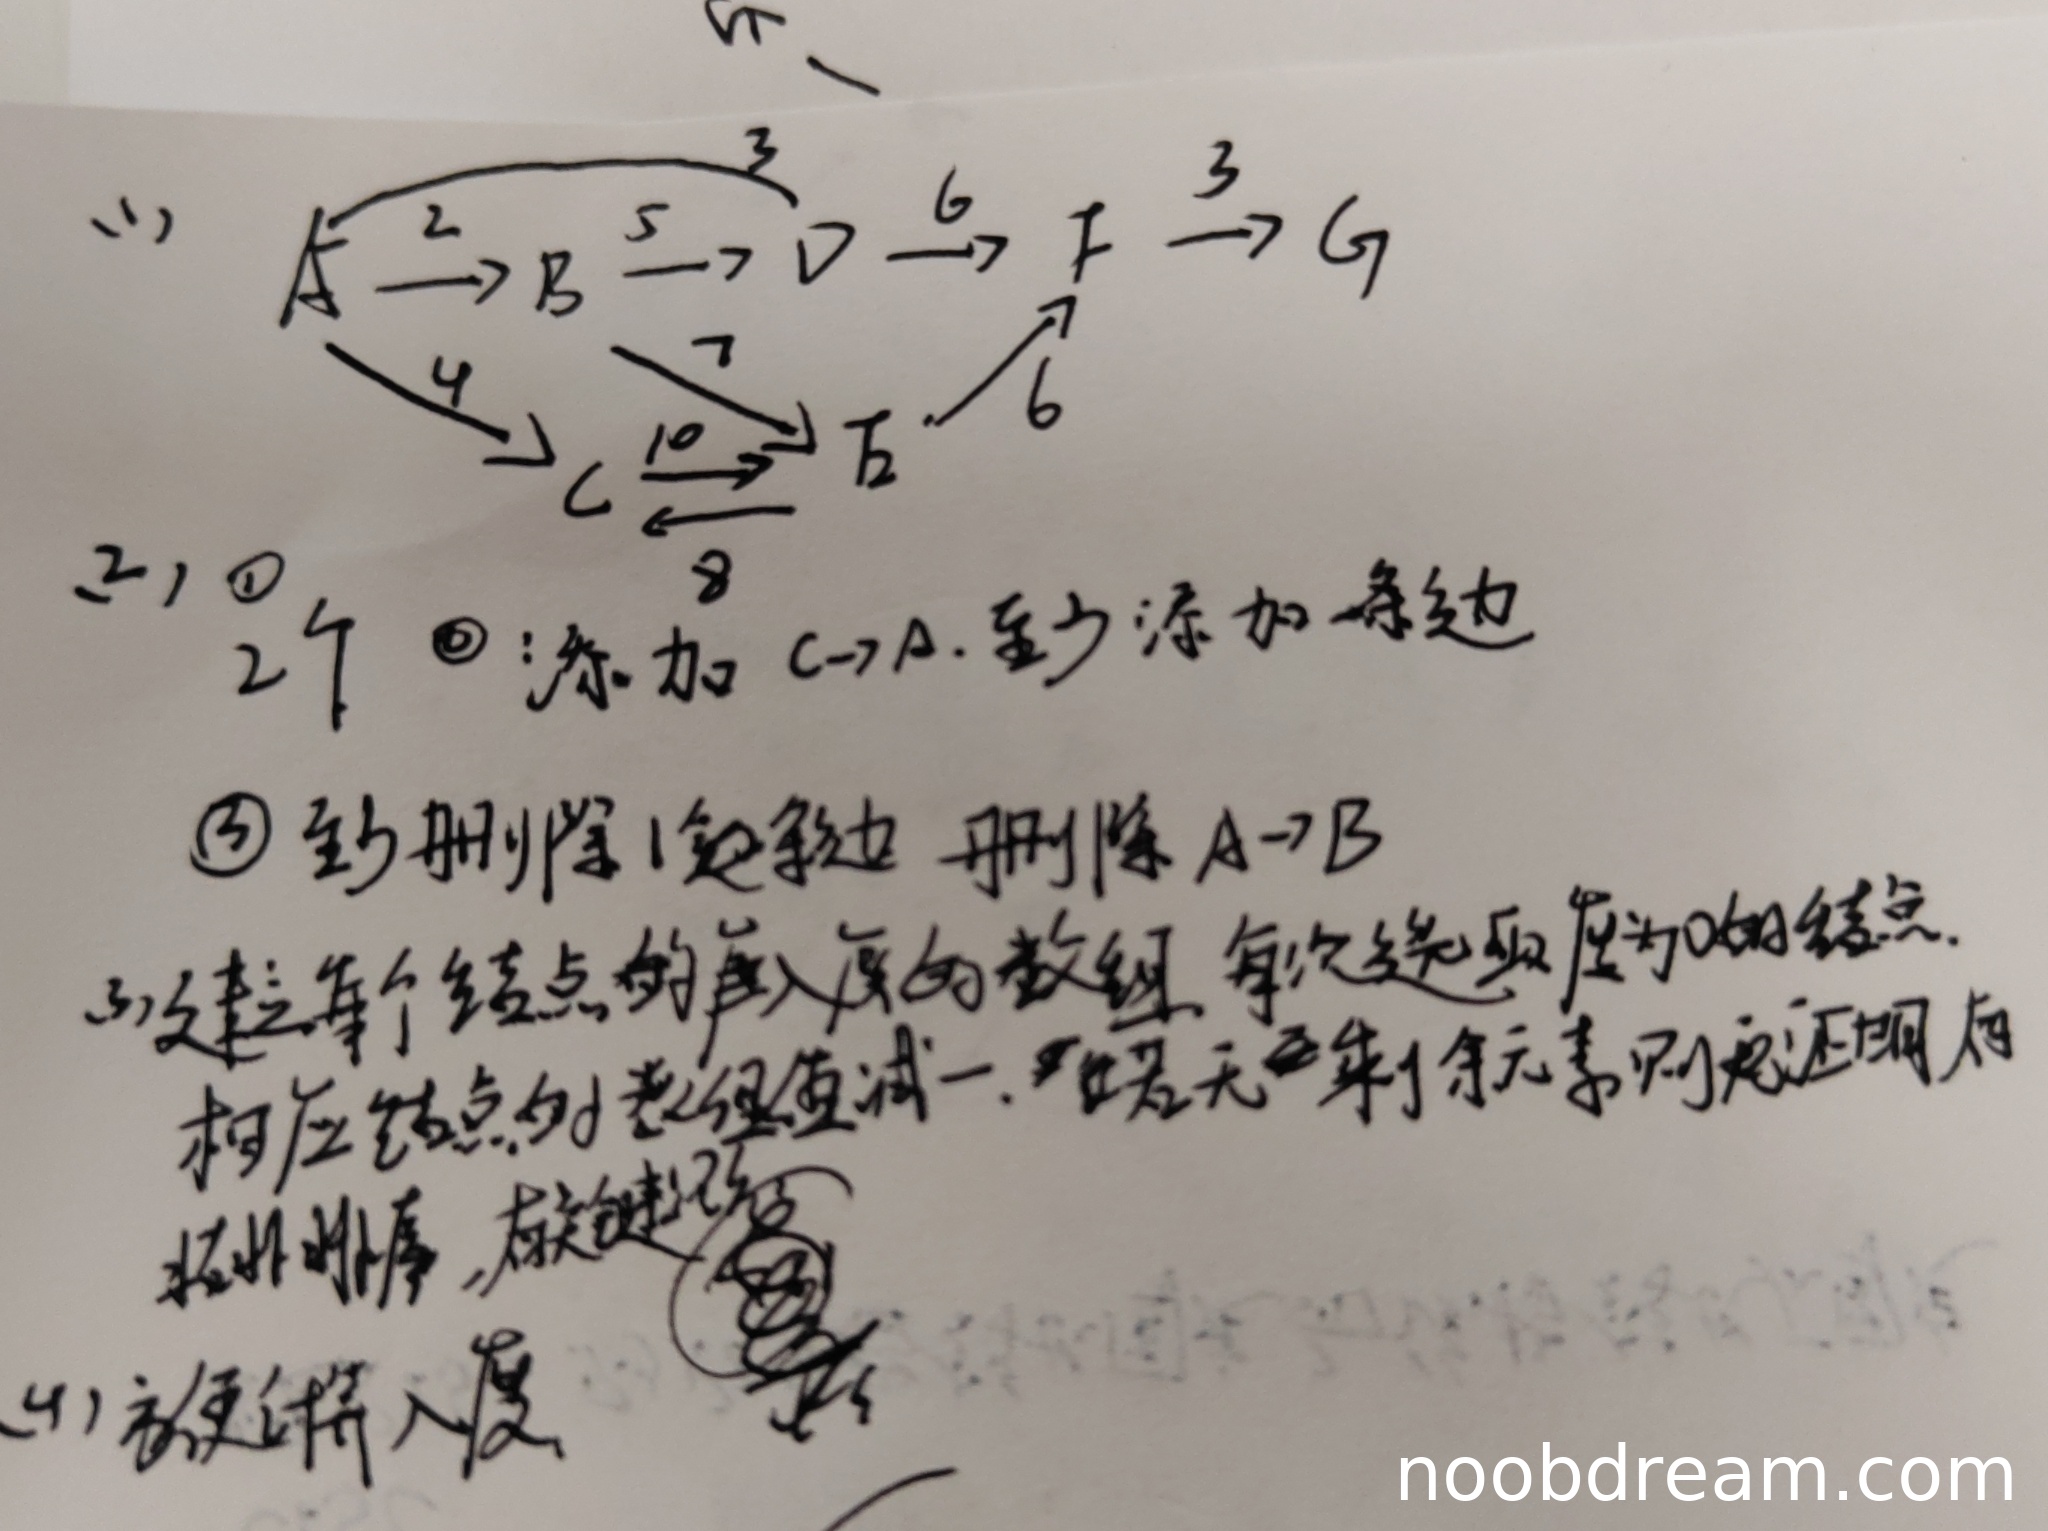 (1)
3
A 2 B 5 D 6 F 3 G
4 7 6
C 10 E
8
(2) ①
2个 ② 添加 C→A. 至少添加一条边
③ 至少删除1条边 删除 A→B
(3) 建立每个结点的入度的数组 每次选取度为0的结点.
相应结点的数组值减一. 若无剩余元素则证明有
拓扑排序, 有关键路
(4) 方便计算入度
noobdream.com